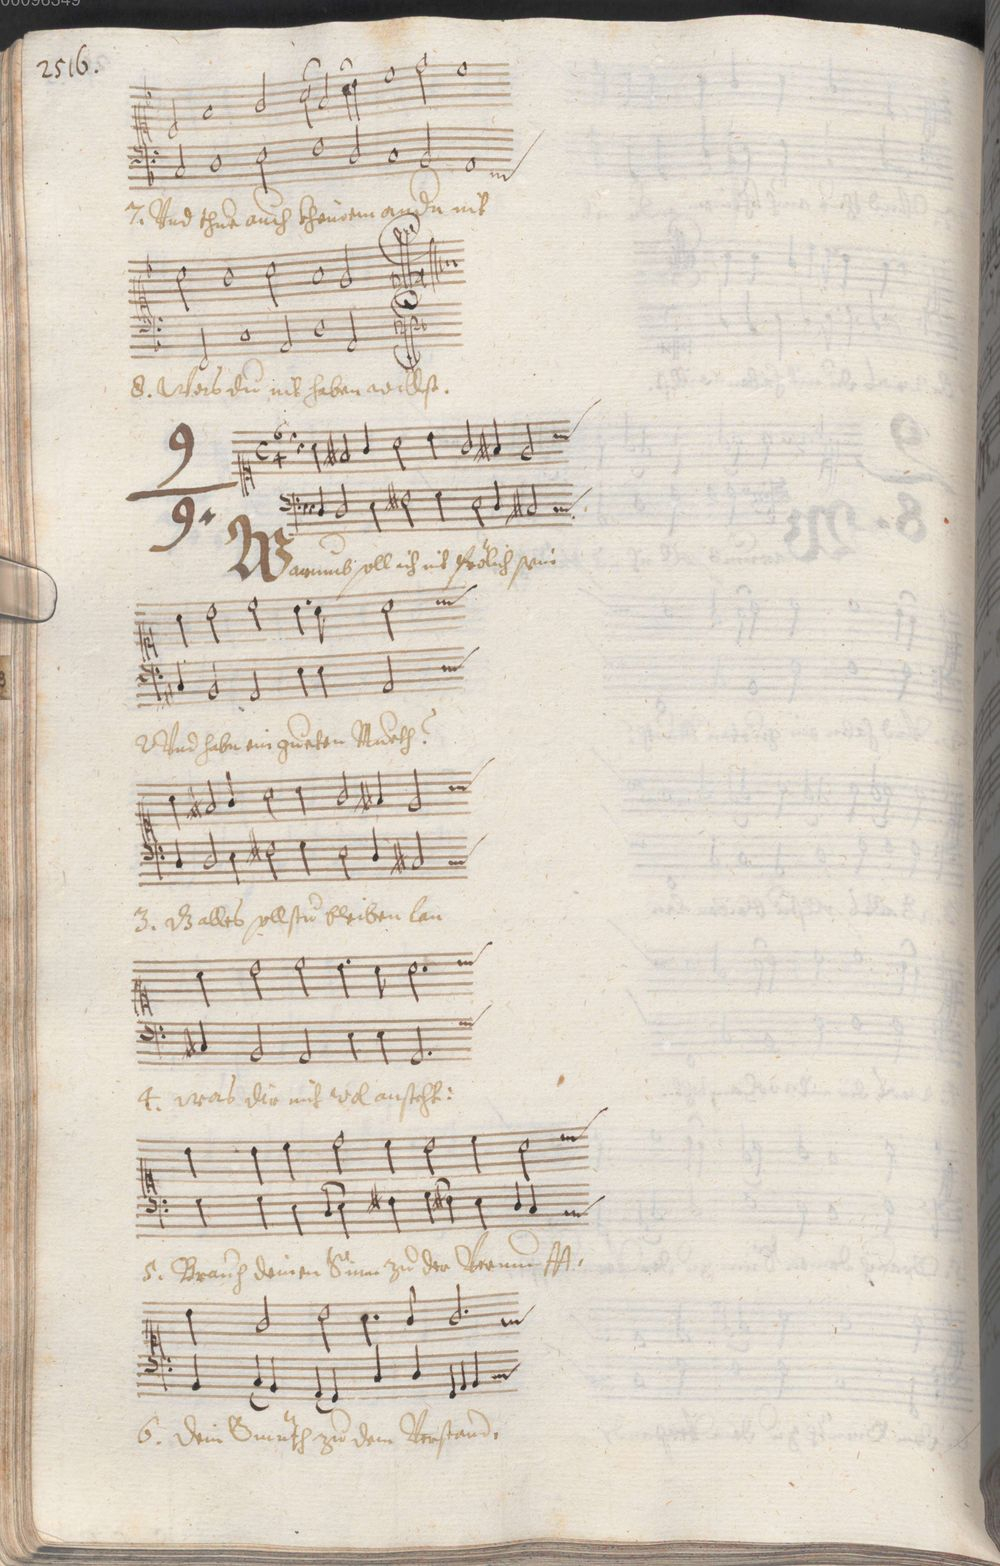 2516.
7. Und thue auch kheinem andn nit
8. Was du nit haben willst.
9
9.
Warumb soll ich nit frölich sein
2. Und habn ein gueten Mueth?
3. Dz alles sollstu bleiben lan
4. was dir nit wol ansteht:
5. Brauch deinen Sinn zu der Vernunfft.
6. Dein Gmüth zu dem Verstand.